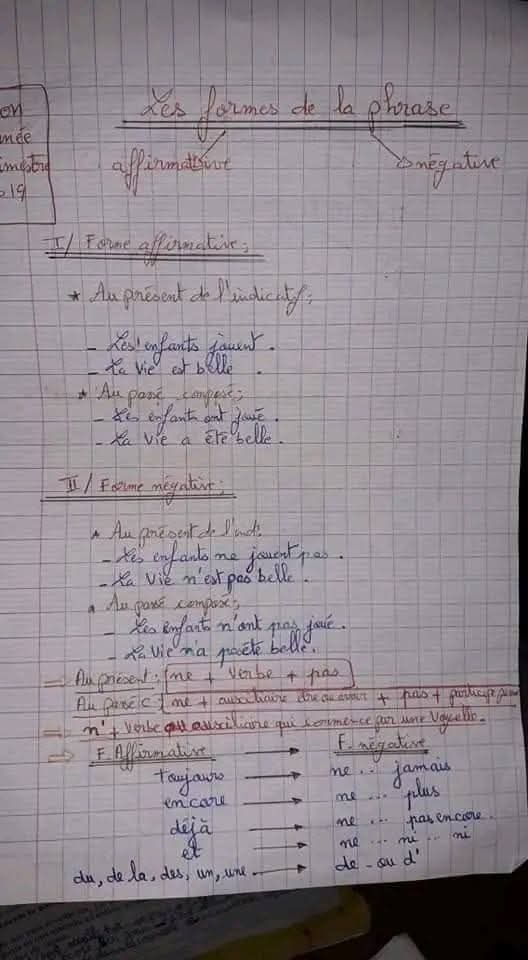 on
née
imestre
19
Les formes de la phrase
affirmative
négative
I/ Forme affirmative :
* Au présent de l'indicatif :
- Les enfants jouent.
- La vie est belle.
* Au passé composé :
- Les enfants ont joué.
- La vie a été belle.
II/ Forme négative :
* Au présent de l'ind.
- Les enfants ne jouent pas.
- La vie n'est pas belle.
* Au passé composé :
- Les enfants n'ont pas joué.
- La vie n'a pas été belle.
⇒ Au présent : ne + verbe + pas
Au passé c : ne + auxiliaire être ou avoir + pas + participe passé
⇒ n' + verbe ou auxiliaire qui commence par une voyelle.
⇒ F. Affirmative → F. négative
toujours → ne ... jamais
encore → ne ... plus
déjà → ne ... pas encore.
et → ne ... ni ... ni
du, de la, des, un, une → de - ou d'